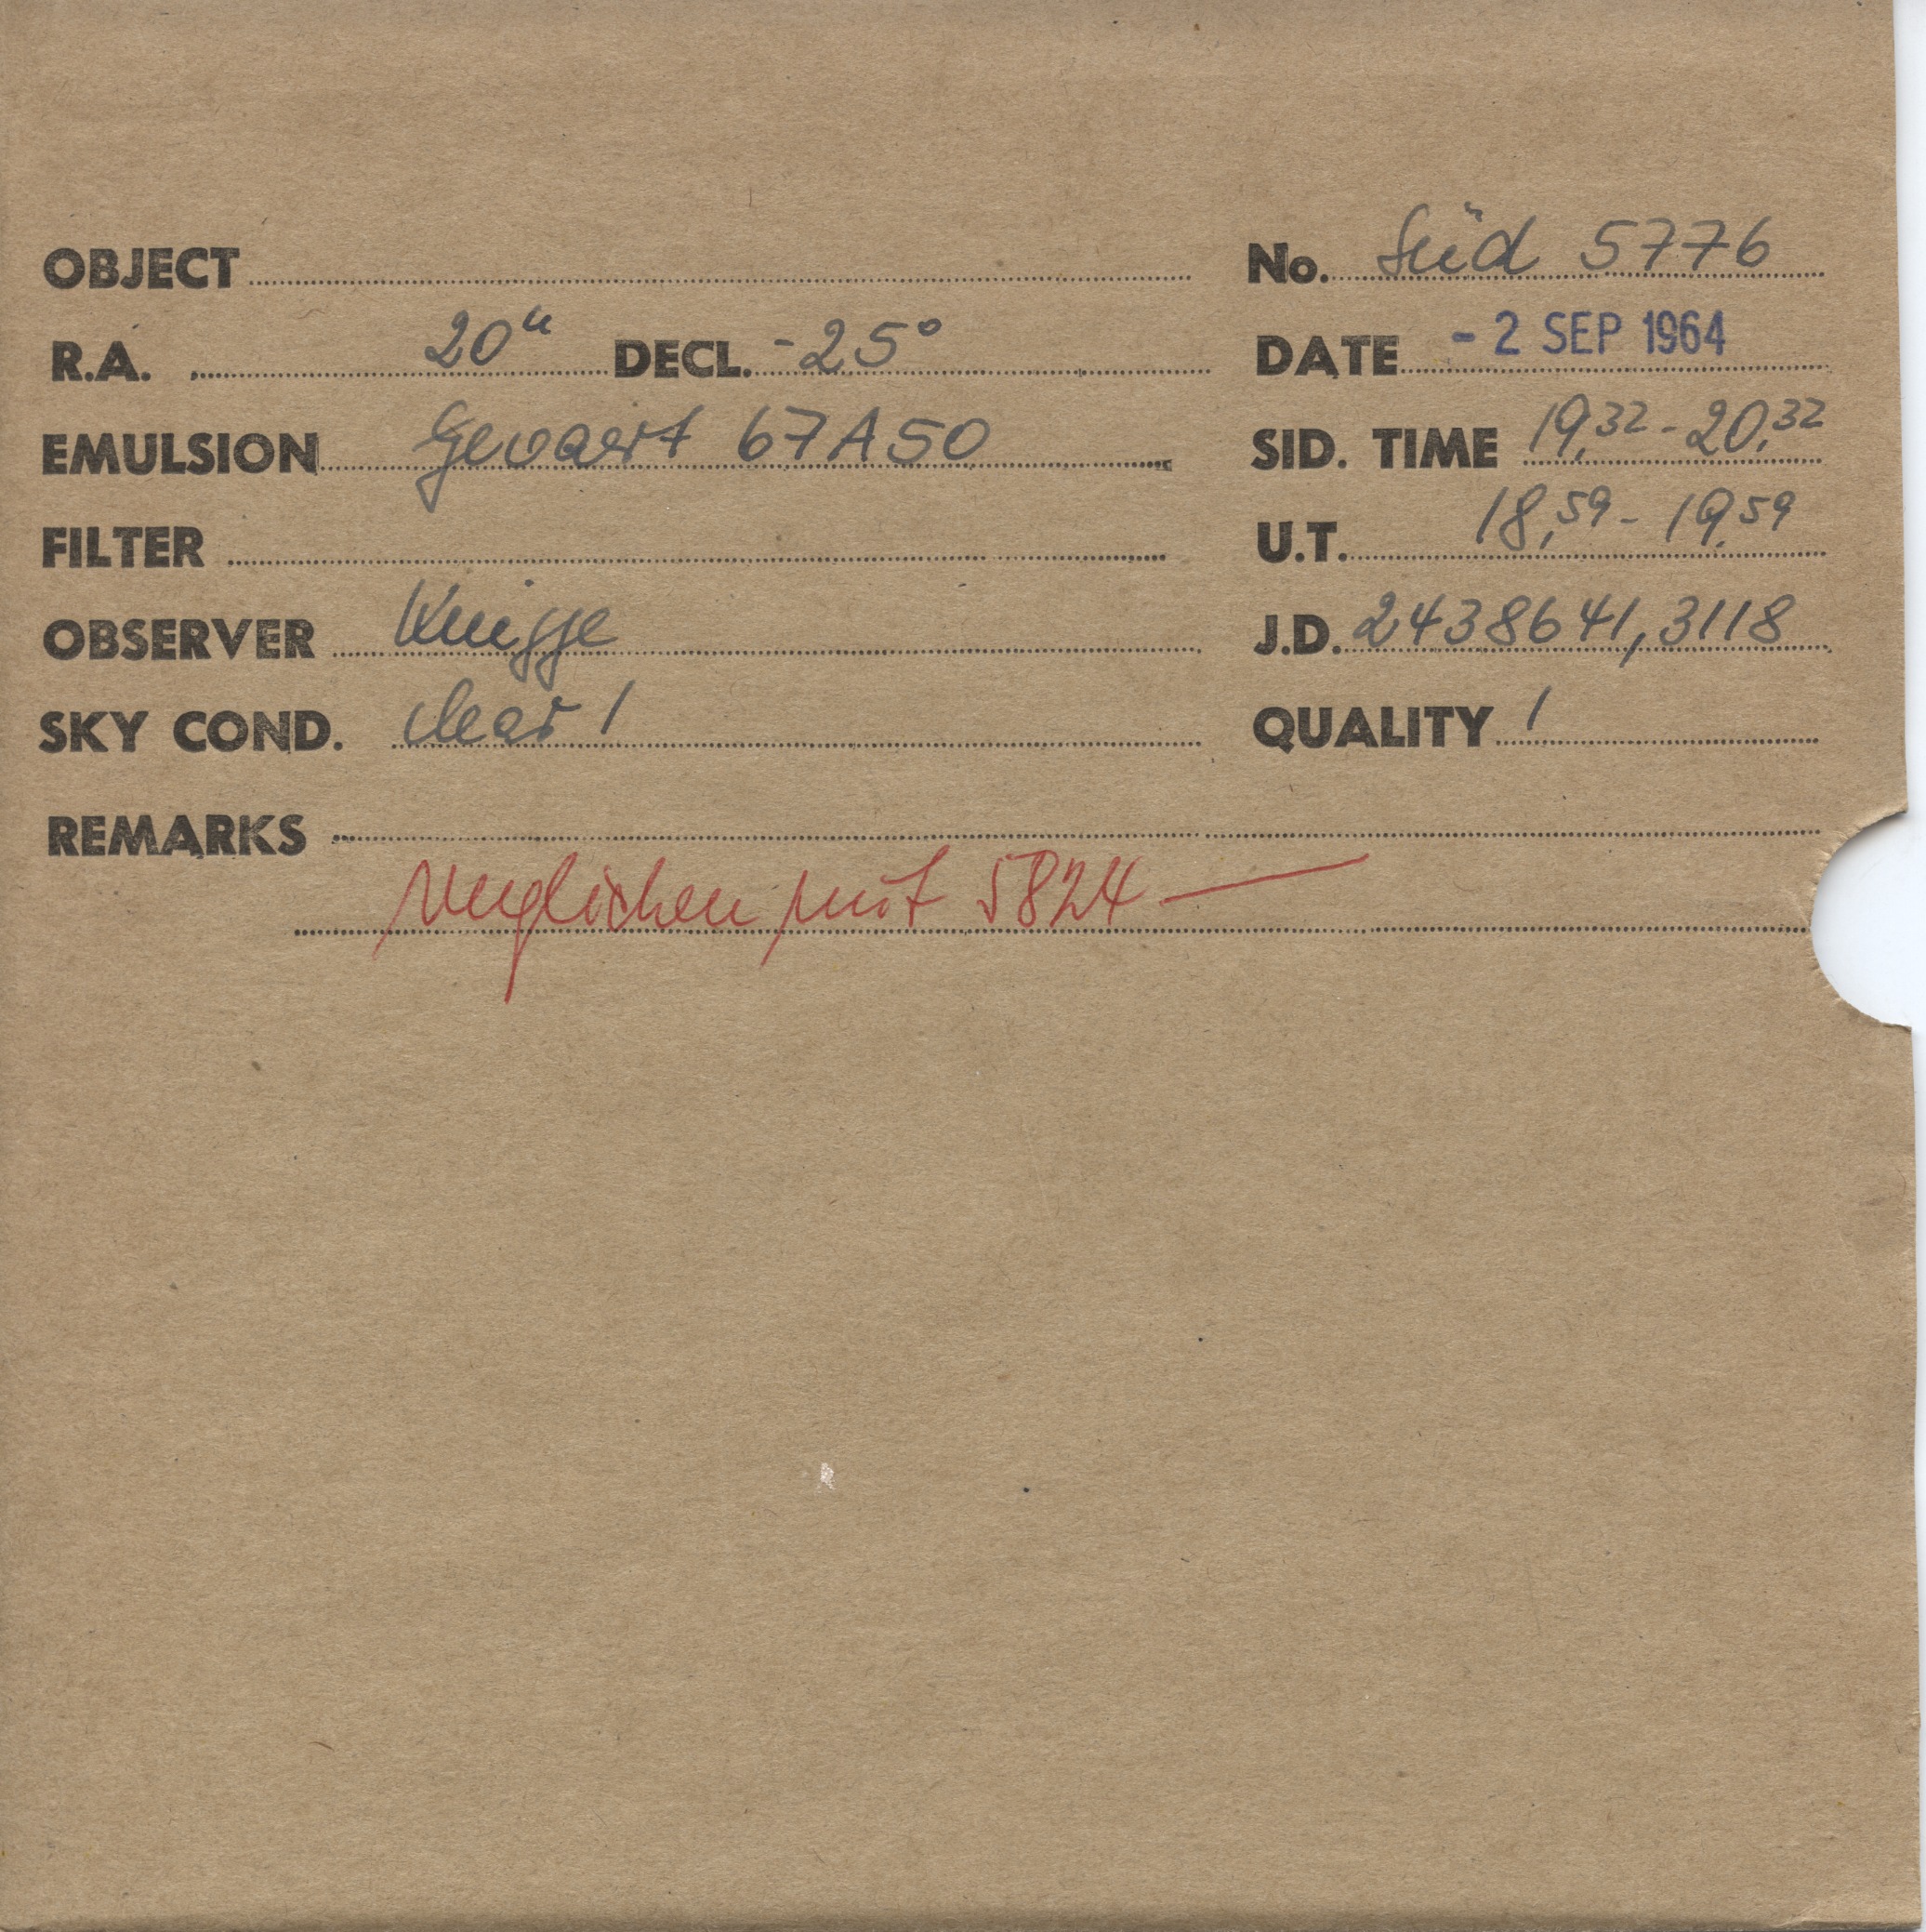 OBJECT No. Süd 5776
R.A. 20h DECL. -25° DATE - 2 SEP 1964
EMULSION Gevaert 67A50 SID. TIME 19,32 - 20,32
FILTER U.T. 18,59 - 19,59
OBSERVER Knigge J.D. 2438641,3118
SKY COND. clear 1 QUALITY 1
REMARKS
verglichen mit 5824 —